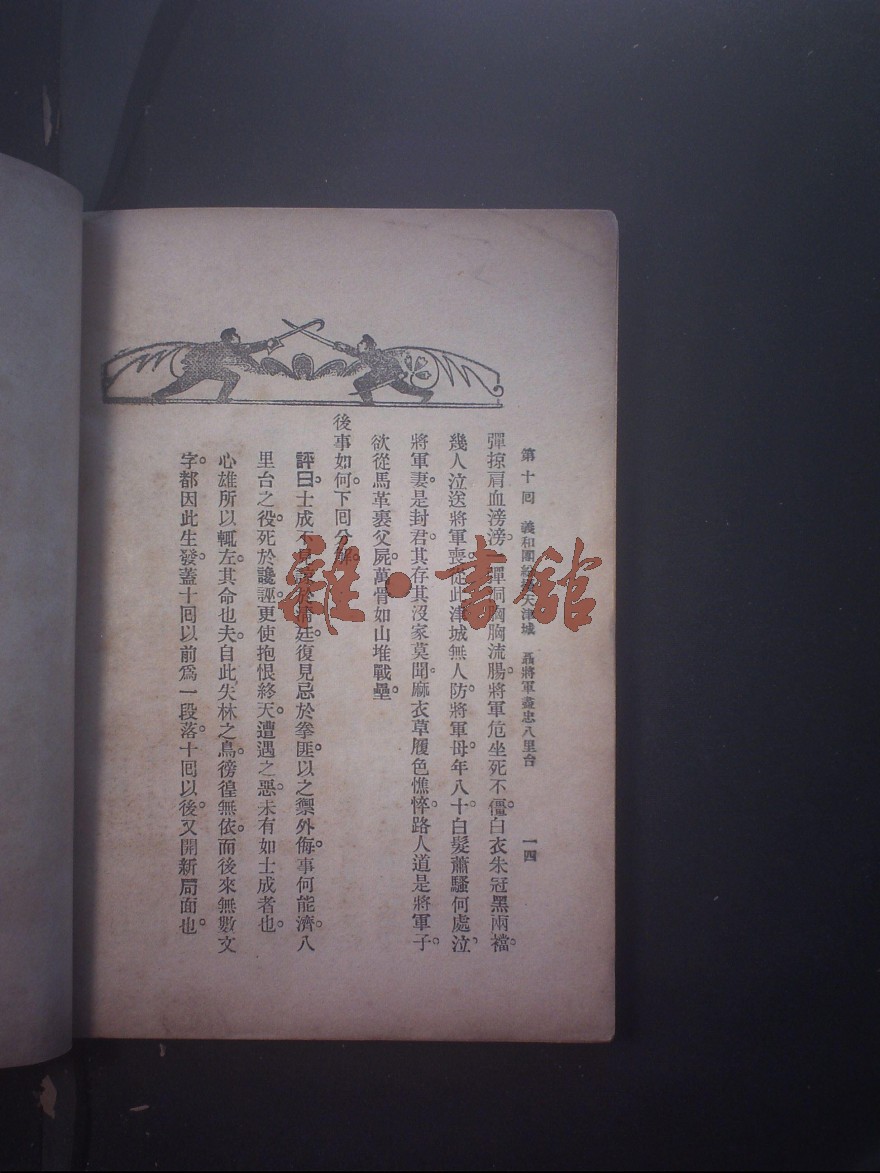 第十回　義和團　天津城　聶將軍盡忠八里台　一四
彈掠肩血滂滂。一彈洞胸胸流腸。將軍危坐死不僵。白衣朱冠黑兩襠。
幾人泣送將軍喪。從此津城無人防。將軍母年八十。白髮蕭騷何處泣。
將軍妻。是封君。其存其沒家莫聞。麻衣草履色憔悴。路人道是將軍子。
欲從馬革裹父屍。萬骨如山堆戰壘。
後事如何。下回分解。
評曰。士成不見諒於清廷。復見忌於拳匪。以之禦外侮。事何能濟。八
里台之役。死於讒誣。更使抱恨終天。遭遇之惡。未有如士成者也。
心雄所以輒左其命也夫。自此失林之鳥。徬徨無依。而後來無數文
字。都因此生發。蓋十回以前爲一段落。十回以後。又開新局面也。
雜·書館